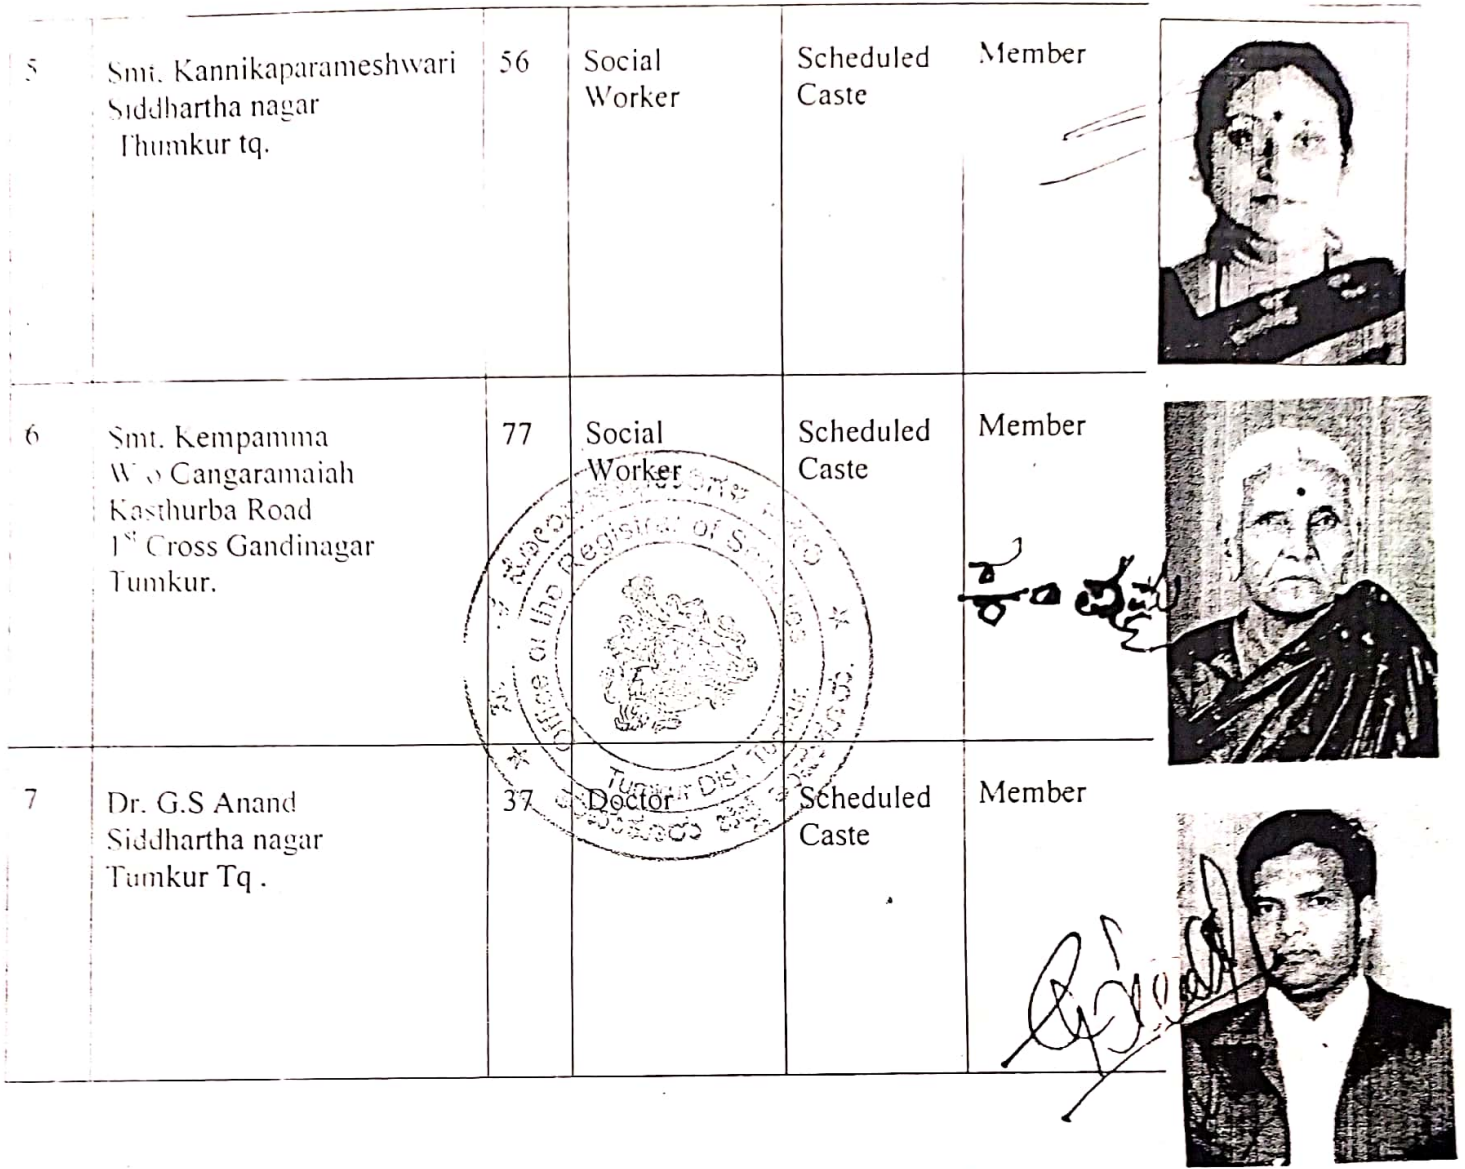 5
Smt. Kannikaparameshwari
Siddhartha nagar
Thumkur tq.
56
Social
Worker
Scheduled
Caste
Member
6
Smt. Kempamma
W/o Cangaramaiah
Kasthurba Road
1st Cross Gandinagar
Tumkur.
77
Social
Worker
Scheduled
Caste
Member
7
Dr. G.S Anand
Siddhartha nagar
Tumkur Tq .
37
Doctor
Scheduled
Caste
Member
Office of the Registrar of
Tumkur Dist.